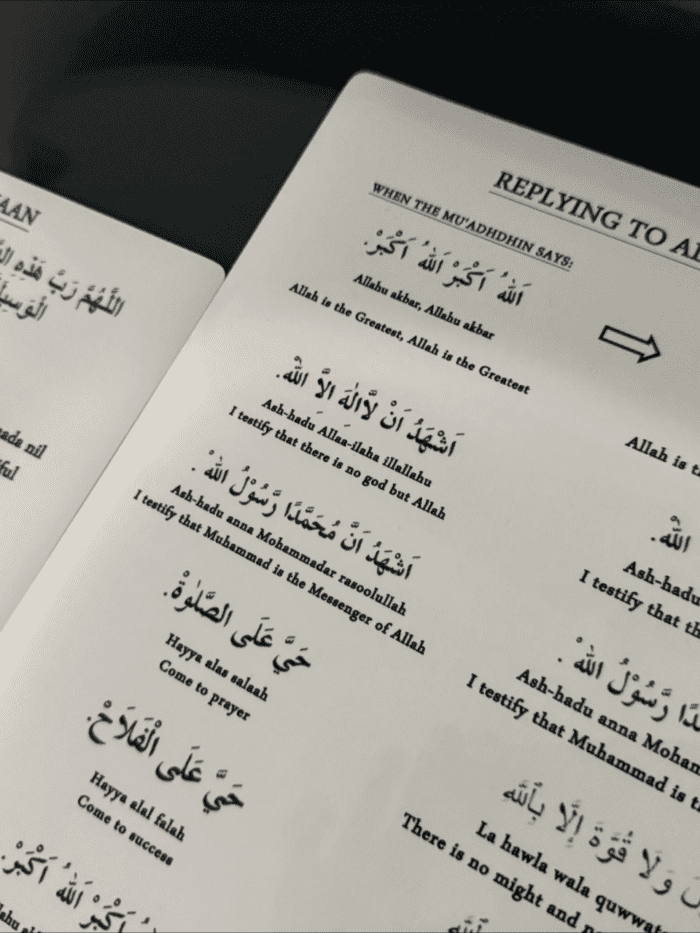 اللَّهُمَّ رَبَّ هَذِهِ
REPLYING TO
WHEN THE MU'ADHDHIN SAYS:
اَللّٰهُ اَكْبَرْ اَللّٰهُ اَكْبَرْ.
Allahu akbar, Allahu akbar
Allah is the Greatest, Allah is the Greatest
⇨
اَشْهَدُ اَنْ لَّااِلٰهَ اِلَّا اللّٰه.
Ash-hadu Allaa-ilaha illallahu
I testify that there is no god but Allah
اَشْهَدُ اَنَّ مُحَمَّدًا رَّسُوْلُ اللّٰهْ.
Ash-hadu anna Mohammadar rasoolullah
I testify that Muhammad is the Messenger of Allah
حَيَّ عَلَى الصَّلٰوةْ.
Hayya alas salaah
Come to prayer
حَيَّ عَلَى الْفَلَاحْ.
Hayya alal falah
Come to success
اَكْبَرْ اَللّٰهُ اَكْبَرْ
Allah is
اللّٰهْ.
Ash-hadu
I testify that
رَّسُوْلُ اللّٰهْ.
Ash-hadu anna
I testify that Muhammad is
وَلَا قُوَّةَ إِلَّا بِٱللَّٰهِ
La hawla wala
There is no might and